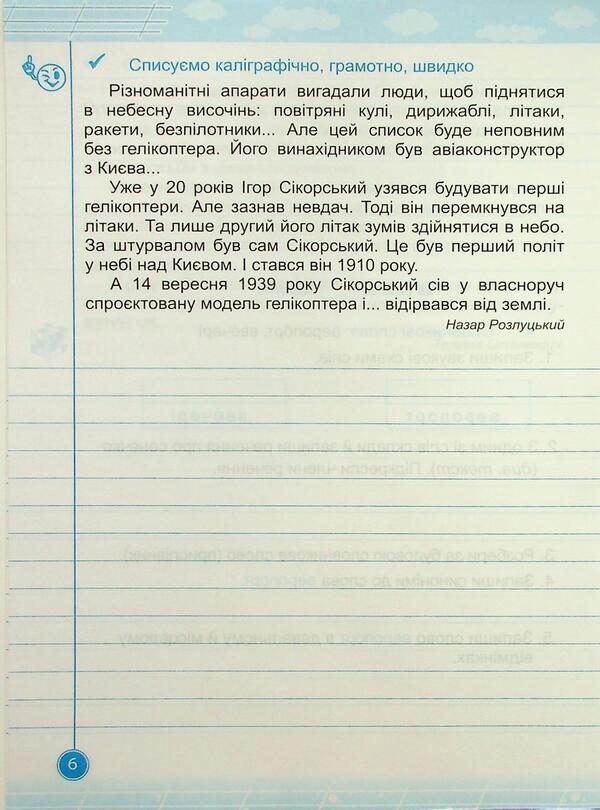 Списуємо каліграфічно, грамотно, швидко
Різноманітні апарати вигадали люди, щоб піднятися
в небесну височінь: повітряні кулі, дирижаблі, літаки,
ракети, безпілотники... Але цей список буде неповним
без гелікоптера. Його винахідником був авіаконструктор
з Києва...
Уже у 20 років Ігор Сікорський узявся будувати перші
гелікоптери. Але зазнав невдач. Тоді він перемкнувся на
літаки. Та лише другий його літак зумів здійнятися в небо.
За штурвалом був сам Сікорський. Це був перший політ
у небі над Києвом. І стався він 1910 року.
А 14 вересня 1939 року Сікорський сів у власноруч
спроєктовану модель гелікоптера і... відірвався від землі.
Назар Розлуцький
6